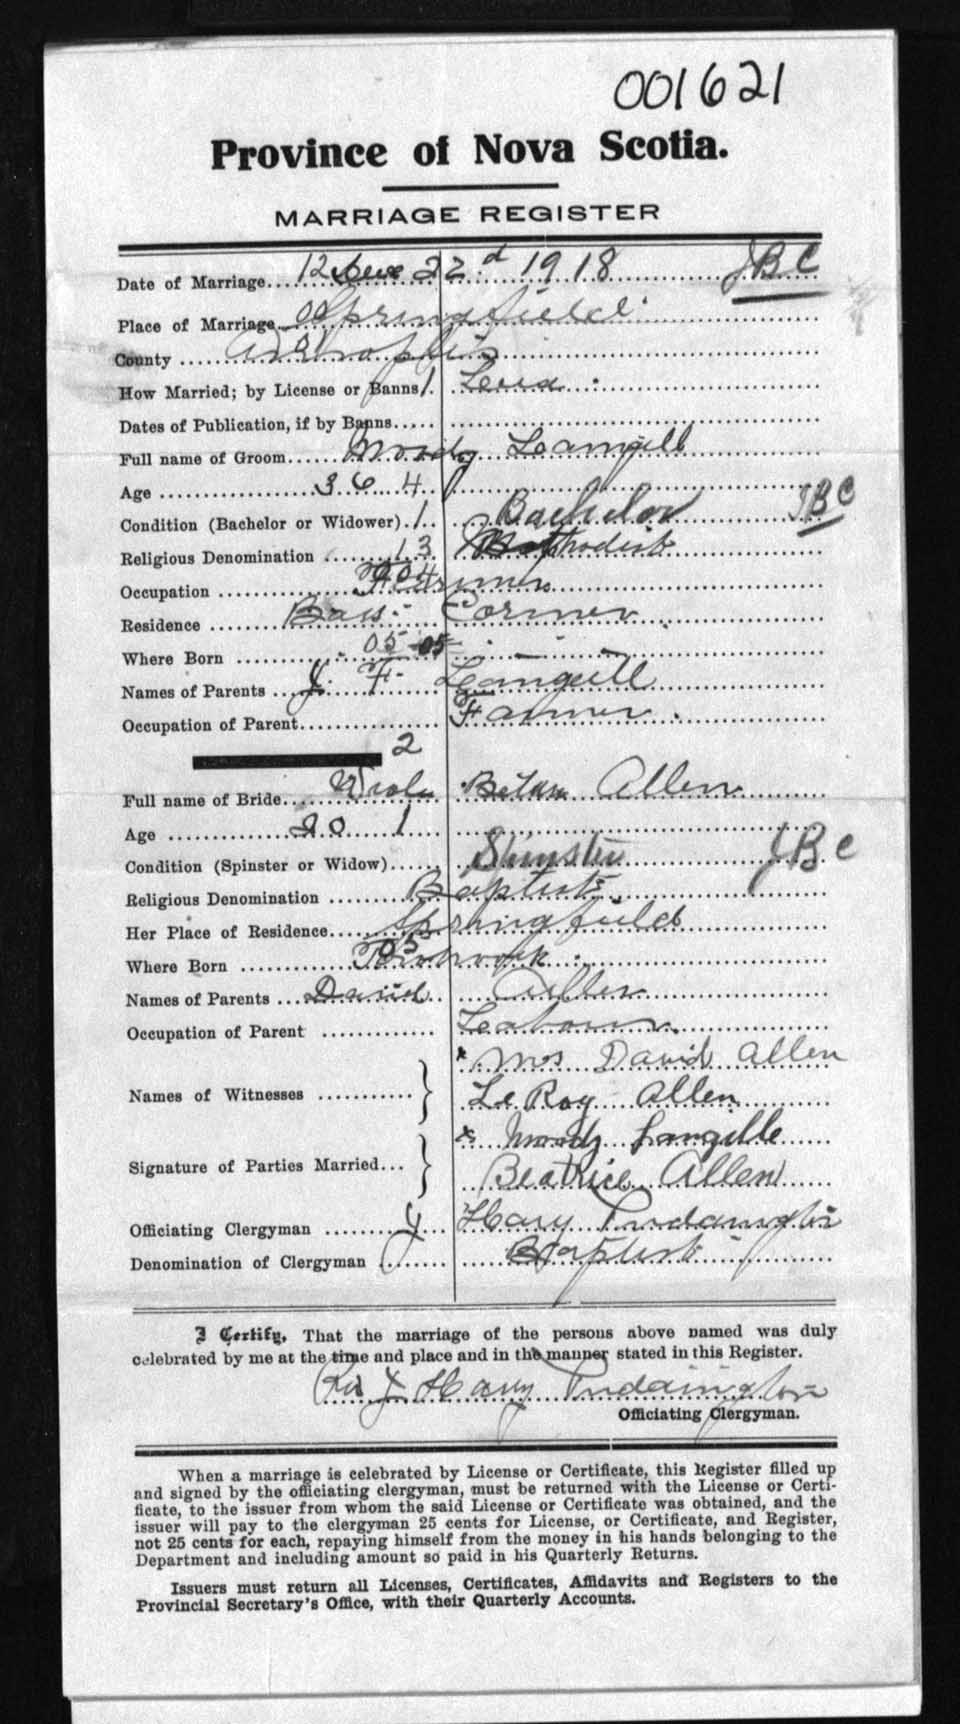 001621
Province of Nova Scotia.
MARRIAGE REGISTER
Date of Marriage...12 Dec 22nd 1918 JBC
Place of Marriage Springfield
County Annapolis
How Married; by License or Banns 1
Dates of Publication, if by Banns
Full name of Groom Moody Langill
Age 36 4
Condition (Bachelor or Widower) 1 Bachelor JBC
Religious Denomination 13 Methodist
Occupation Farmer
Residence Corner
Where Born 05-05
Names of Parents J. F. Langill
Occupation of Parent Farmer
2
Full name of Bride Viola Allen
Age 20 1
Condition (Spinster or Widow) Spinster JBC
Religious Denomination Baptist
Her Place of Residence Springfield
Where Born 05 Torbrook
Names of Parents David Allen
Occupation of Parent
x Mrs David Allen
Names of Witnesses
LeRoy Allen
x Moody Langille
Signature of Parties Married
Beatrice Allen
Officiating Clergyman J Harry Puddington
Denomination of Clergyman Baptist
I Certify, That the marriage of the persons above named was duly
celebrated by me at the time and place and in the manner stated in this Register.
Rev J Harry Puddington
Officiating Clergyman.
When a marriage is celebrated by License or Certificate, this Register filled up
and signed by the officiating clergyman, must be returned with the License or Certi-
ficate, to the issuer from whom the said License or Certificate was obtained, and the
issuer will pay to the clergyman 25 cents for License, or Certificate, and Register,
not 25 cents for each, repaying himself from the money in his hands belonging to the
Department and including amount so paid in his Quarterly Returns.
Issuers must return all Licenses, Certificates, Affidavits and Registers to the
Provincial Secretary's Office, with their Quarterly Accounts.